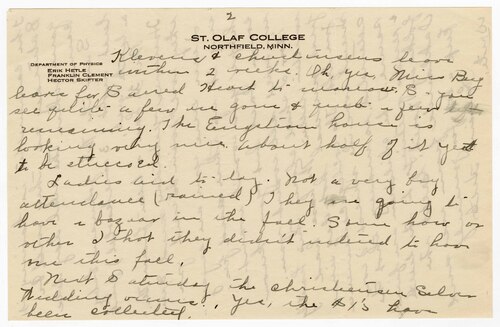 2
ST. OLAF COLLEGE
NORTHFIELD, MINN.
DEPARTMENT OF PHYSICS
ERIK HETLE
FRANKLIN CLEMENT
HECTOR SKIFTER
Klevens & Christensens leave
within 2 weeks. Oh yes, Miss Berg
leaves for Sacred Heart to-morrow. So you
see quite a few are gone & just a few
remaining. The Engstrom house is
looking very nice. About half of it yet
to be stuccoed.
Ladies aid to-day. Not a very big
attendance (rained) They are going to
have a bazaar in the fall. Some how or
other I thot they didn't intend to have
one this fall.
Next Saturday the Christensen Silver
Wedding occurs. Yes, the $1's have
been collected.